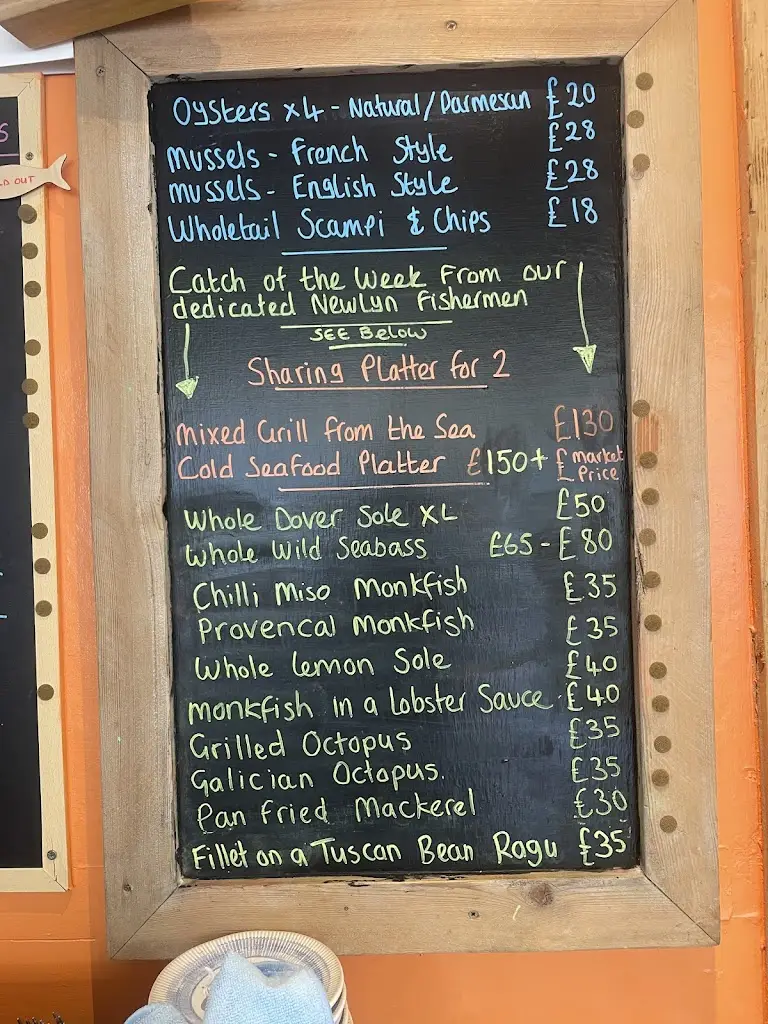 Oysters x4 - Natural/Parmesan £20
Mussels - French Style £28
Mussels - English Style £28
Wholetail Scampi & Chips £18
Catch of the Week From our
dedicated Newlyn Fishermen
SEE Below
Sharing Platter for 2
Mixed Grill from the Sea £130
Cold Seafood Platter £150+ £ market Price
Whole Dover Sole XL £50
Whole Wild Seabass £65 - £80
Chilli Miso Monkfish £35
Provencal Monkfish £35
Whole Lemon Sole £40
Monkfish in a Lobster Sauce £40
Grilled Octopus £35
Galician Octopus. £35
Pan Fried Mackerel £30
Fillet on a Tuscan Bean Ragu £35
S
OUT